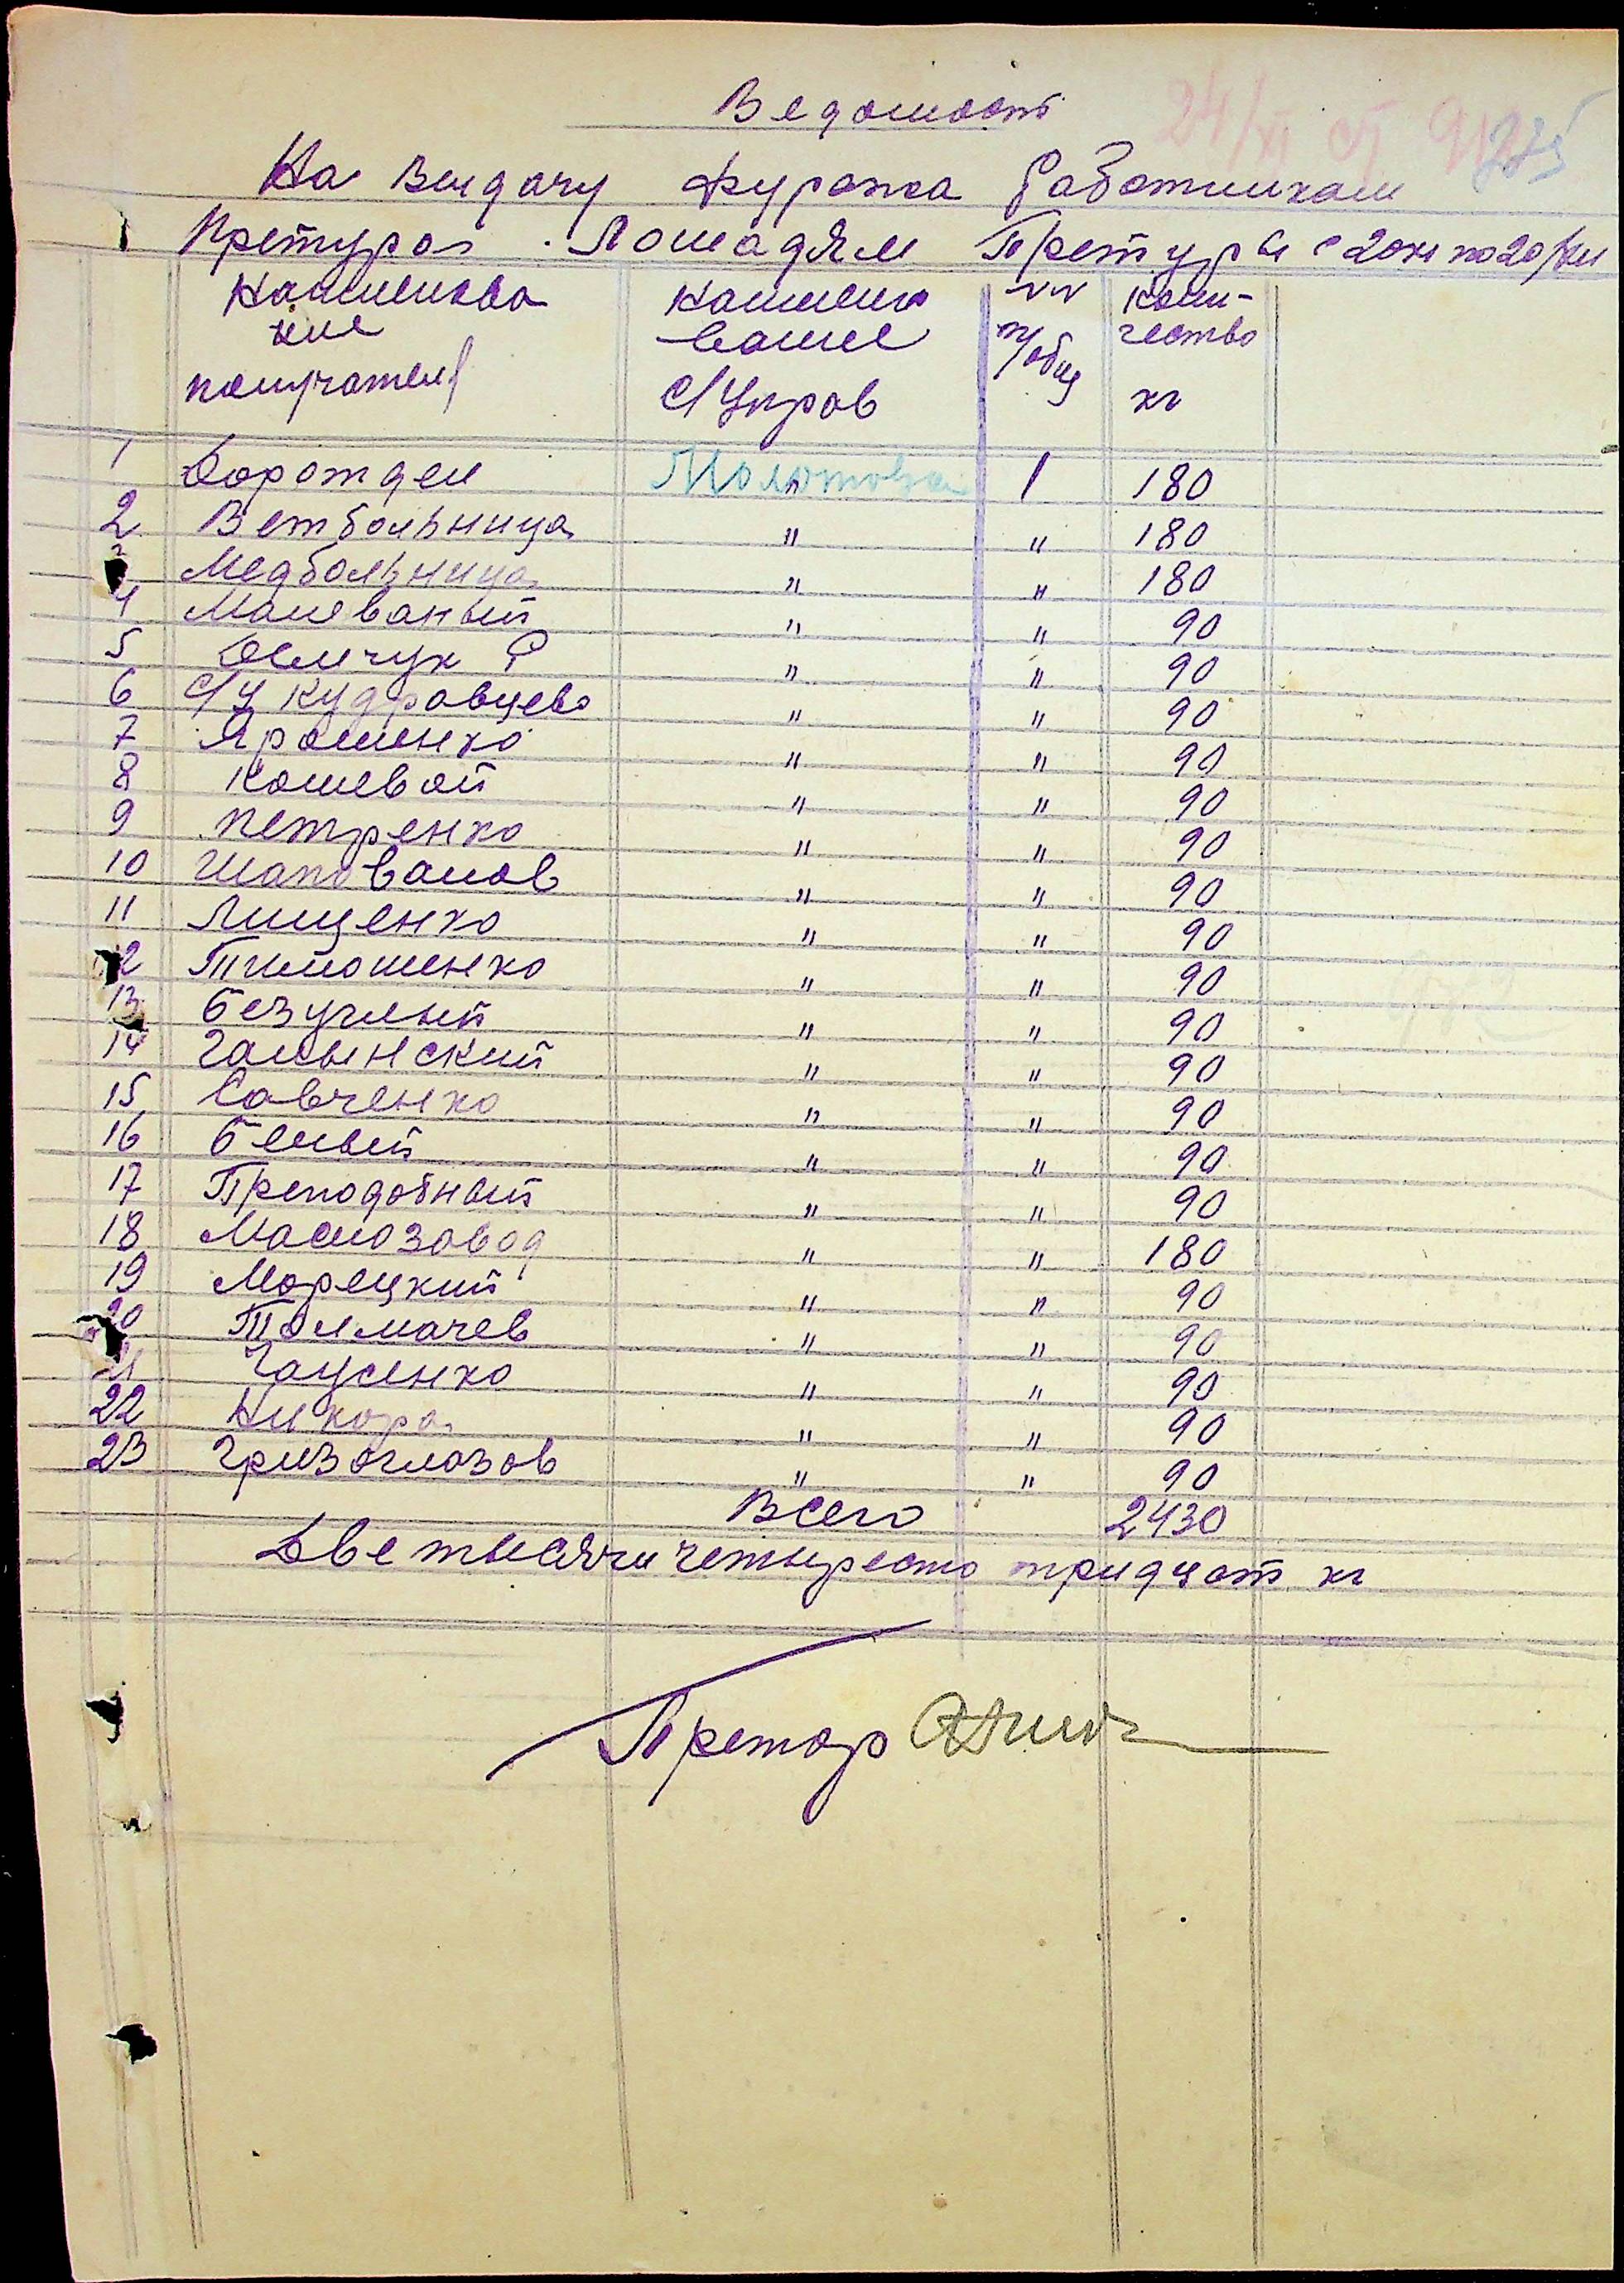 Ведомость
На Выдачу Фуража Работникам
Претура Лошадям Претуры с 20/XI по 20/XII
Наименова Наименo №№ коли-
ние вание т/общ чество
получателя с/Управ кг
1 Дорожден Молотовка 1 180
2 Ветбольница " " 180
Медбольница " " 180
4 Малеваный " " 90
5 Демчук Ф " " 90
6 с/у Кудравцево " " 90
7 Ярошенко " " 90
8 Кошевой " " 90
9 Петренко " " 90
10 Шаповалов " " 90
11 Лищенко " " 90
12 Тимошенко " " 90
13 Безуглый " " 90
14 Галынский " " 90
15 Савченко " " 90
16 Белый " " 90
17 Преподобный " " 90
18 Маслозавод " " 180
19 Марецкий " " 90
20 Толмачев " " 90
21 Гаусенко " " 90
22 Никора " " 90
23 Гризоглазов " " 90
Всего 2430
Две тысячи четыреста тридцат кг
Претор